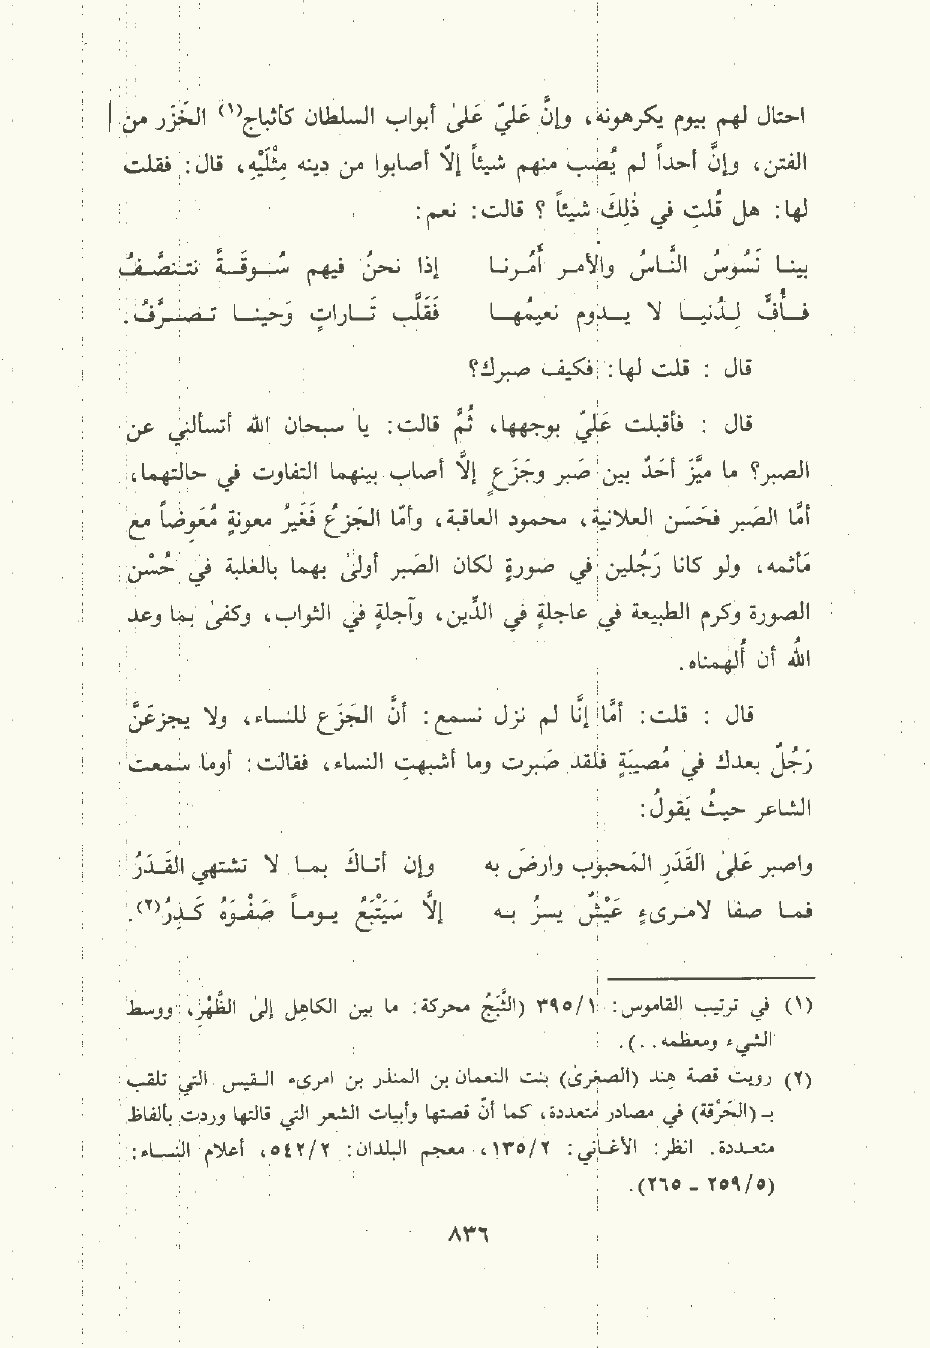 احتال لهم بيوم يكرهونه، وإنَّ عليَّ عَلىٰ أبواب السلطان كأثباج(١) الخَزَر من
الفتن، وإنَّ أحداً لم يُصِب منهم شيئاً إلّا أصابوا من دينه مثْلَيْه، قال: فقلت
لها: هل قُلتِ في ذٰلِكَ شيئاً؟ قالت: نعم:
بينا نَسُوسُ النَّاسُ والأمر أمْرنا إذا نحنُ فيهم سُوقَةً نتنصَّفُ
فأُفٍّ لدُنيا لا يدوم نعيمُها تَقَلَّب تَاراتٍ وحينا تصرَّفُ.
قال : قلت لها: فكيف صبرك؟
قال : فأقبلت عَليَّ بوجهها، ثُمَّ قالت: يا سبحان الله أتسألني عن
الصبر؟ ما مَيَّز أحَدٌ بين صَبر وجَزِع إلّا أصاب بينهما التفاوت في حالتهما،
أمَّا الصَبر فحَسَن العلانية، محمود العاقبة، وأمَّا الجَزعُ فَغَيرُ معونة مُعَوضاً مع
مَأثمه، ولو كانا رَجُلين في صورة لكان الصَبر أولىٰ بهما بالغلبة في حُسْن
الصورة وكرم الطبيعة في عاجلة في الدِّين، وآجلة في الثواب، وكفىٰ بما وعد
اللهُ أن ألهمناه.
قال : قلت: أمَّا إنَّا لم نزل نسمع: أنَّ الجَزَع للنساء، ولا يجزعَنَّ
رَجُلٌ بعدك في مُصيبَةٍ فلقد صَبرت وما أشبهتِ النساء، فقالت: أوما سمعت
الشاعر حيثُ يَقولُ:
واصبر عَلىٰ القَدَر المَحبوب وارضَ به وإن أتاكَ بما لا تشتهي القَدَرُ
فما صفا لامرىءٍ عَيْشٌ يسرُ به إلّا سَيَتْبَعُ يوماً صَفْوَهُ كَدِرُ(٢).
(١) في ترتيب القاموس: ٣٩٥/١ (الثَّبَجُ محركة: ما بين الكاهِل إلىٰ الظَّهْرِ، ووسط
الشيء ومعظمه..).
(٢) رويت قصة هند (الصغرى) بنت النعمان بن المنذر بن امرىء القيس التي تلقب
بـ (الخَرْقة) في مصادر متعددة، كما أن قصتها وأبيات الشعر التي قالتها وردت بألفاظ
متعددة. انظر: الأغاني: ١٣٥/٢، معجم البلدان: ٥٤٢/٢، أعلام النساء:
(٢٥٩/٥ ـ ٢٦٥).
٨٣٦